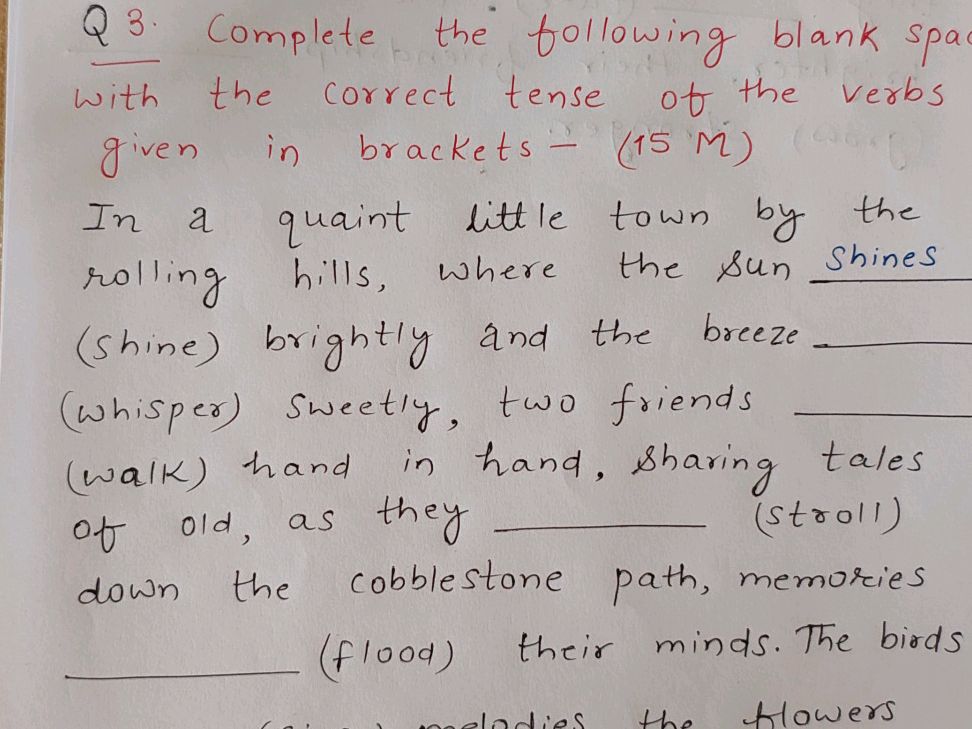 Q 3. Complete the following blank spac
with the correct tense of the verbs
given in brackets - (15 M)
In a quaint little town by the
rolling hills, where the sun Shines
(shine) brightly and the breeze ____
(whisper) sweetly, two friends ____
(walk) hand in hand, sharing tales
of old, as they ____ (stroll)
down the cobblestone path, memories
____ (flood) their minds. The birds
melodies the flowers